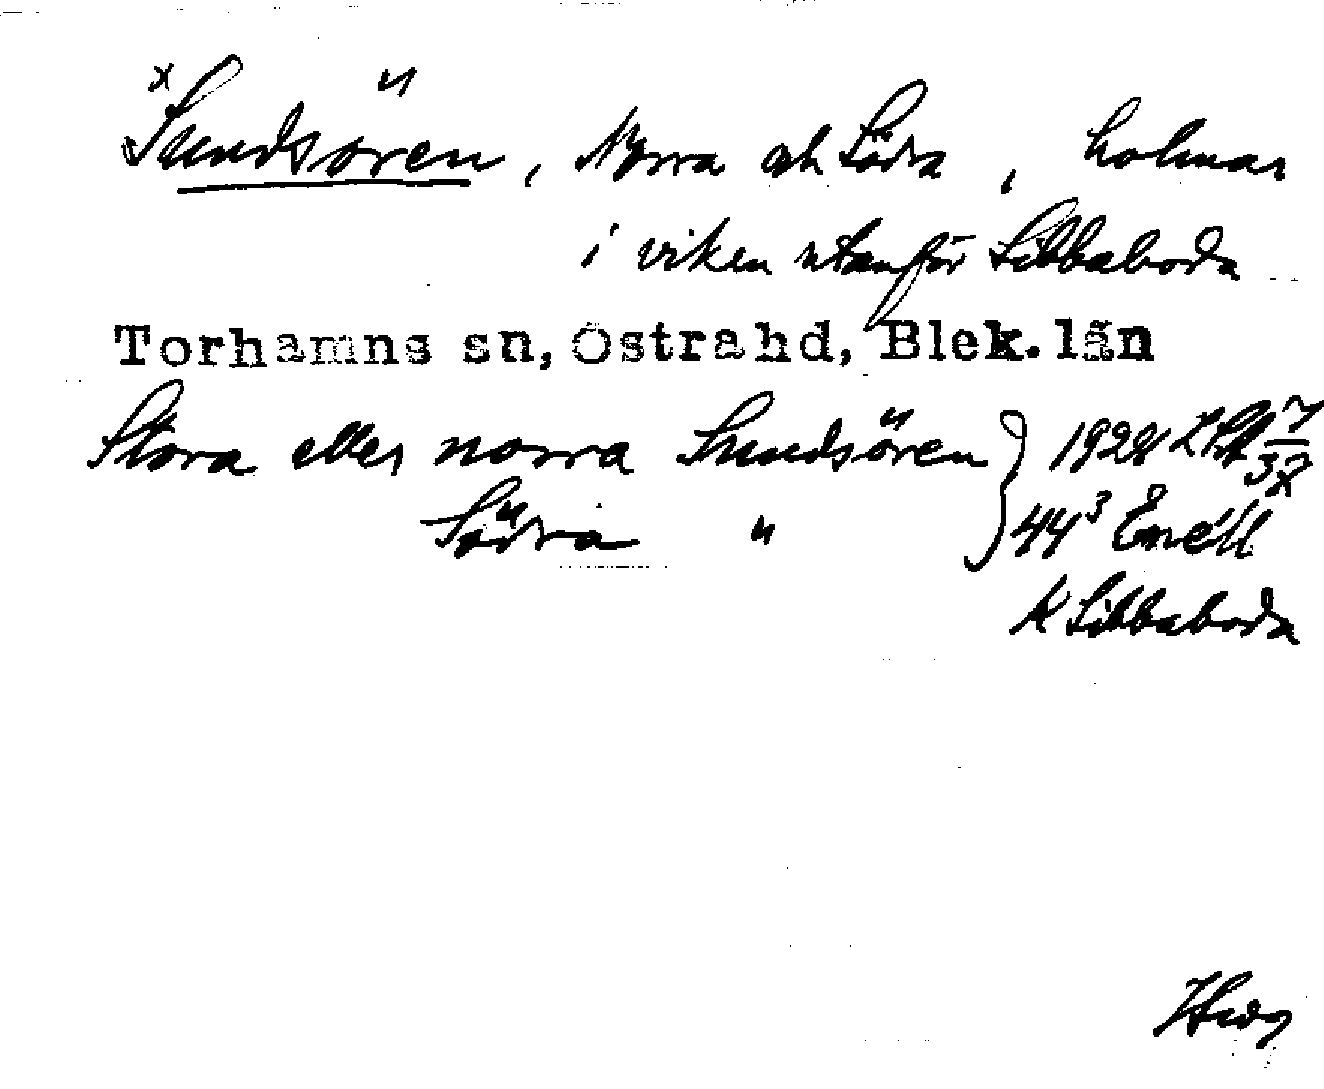 ˣSundsören, Norra och Södra, holmar
i viken utanför Sibbaboda
Torhamns sn, Östrahd, Blek. län
Stora eller norra Sundsören } 1928
Södra " } 44³ Enéll
K Sibbaboda